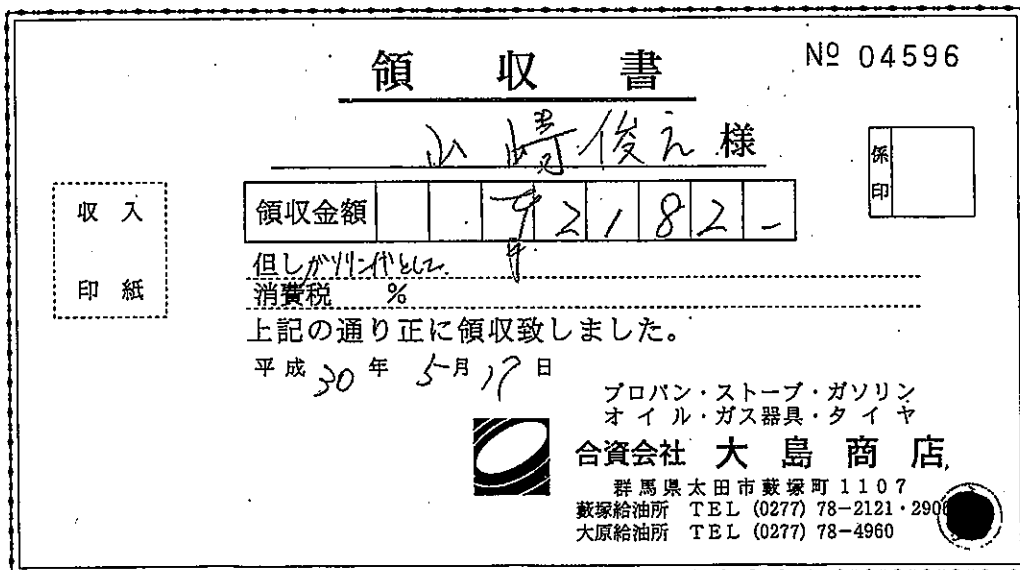 領収書
№ 04596
山崎俊え 様
係印
収入
印紙
領収金額 ¥2,182-
但しガソリン代として
消費税 %
上記の通り正に領収致しました。
平成30年5月17日
プロパン・ストーブ・ガソリン
オイル・ガス器具・タイヤ
合資会社 大島商店
群馬県太田市藪塚町1107
藪塚給油所 TEL (0277) 78-2121・290
大原給油所 TEL (0277) 78-4960